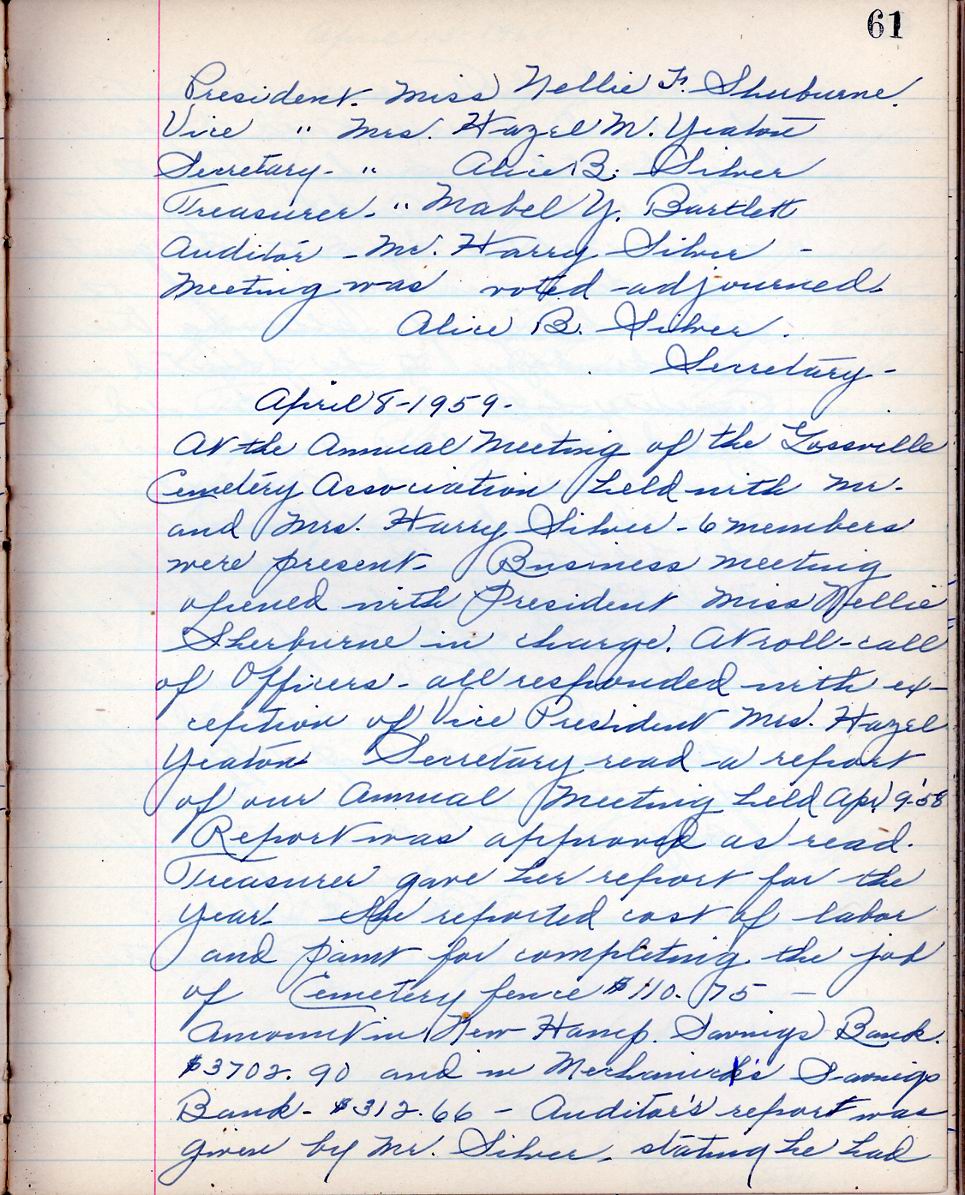 61
President. Miss Nellie F. Sherburne.
Vice " Mrs. Hazel M. Yeaton
Secretary - " Alice B. Silver
Treasurer - " Mabel Y. Bartlett
Auditor - Mr. Harry Silver -
Meeting was voted adjourned.
Alice B. Silver.
Secretary -
April 8-1959-
At the Annual Meeting of the Gossville
Cemetery Association held with Mr.
and Mrs. Harry Silver - 6 members
were present - Business meeting
opened with President Miss Nellie
Sherburne in charge. At roll-call
of Officers - all responded with ex-
ception of Vice President Mrs. Hazel
Yeaton. Secretary read a report
of our Annual Meeting held Apr 9-'58
Report was approved as read.
Treasurer gave her report for the
year. She reported cost of labor
and paint for completing the job
of Cemetery fence $110.75 -
Amount in New Hamp. Savings Bank.
$3702.90 and in Mechanick's Savings
Bank - $312.66 - Auditor's report was
given by Mr. Silver, stating he had